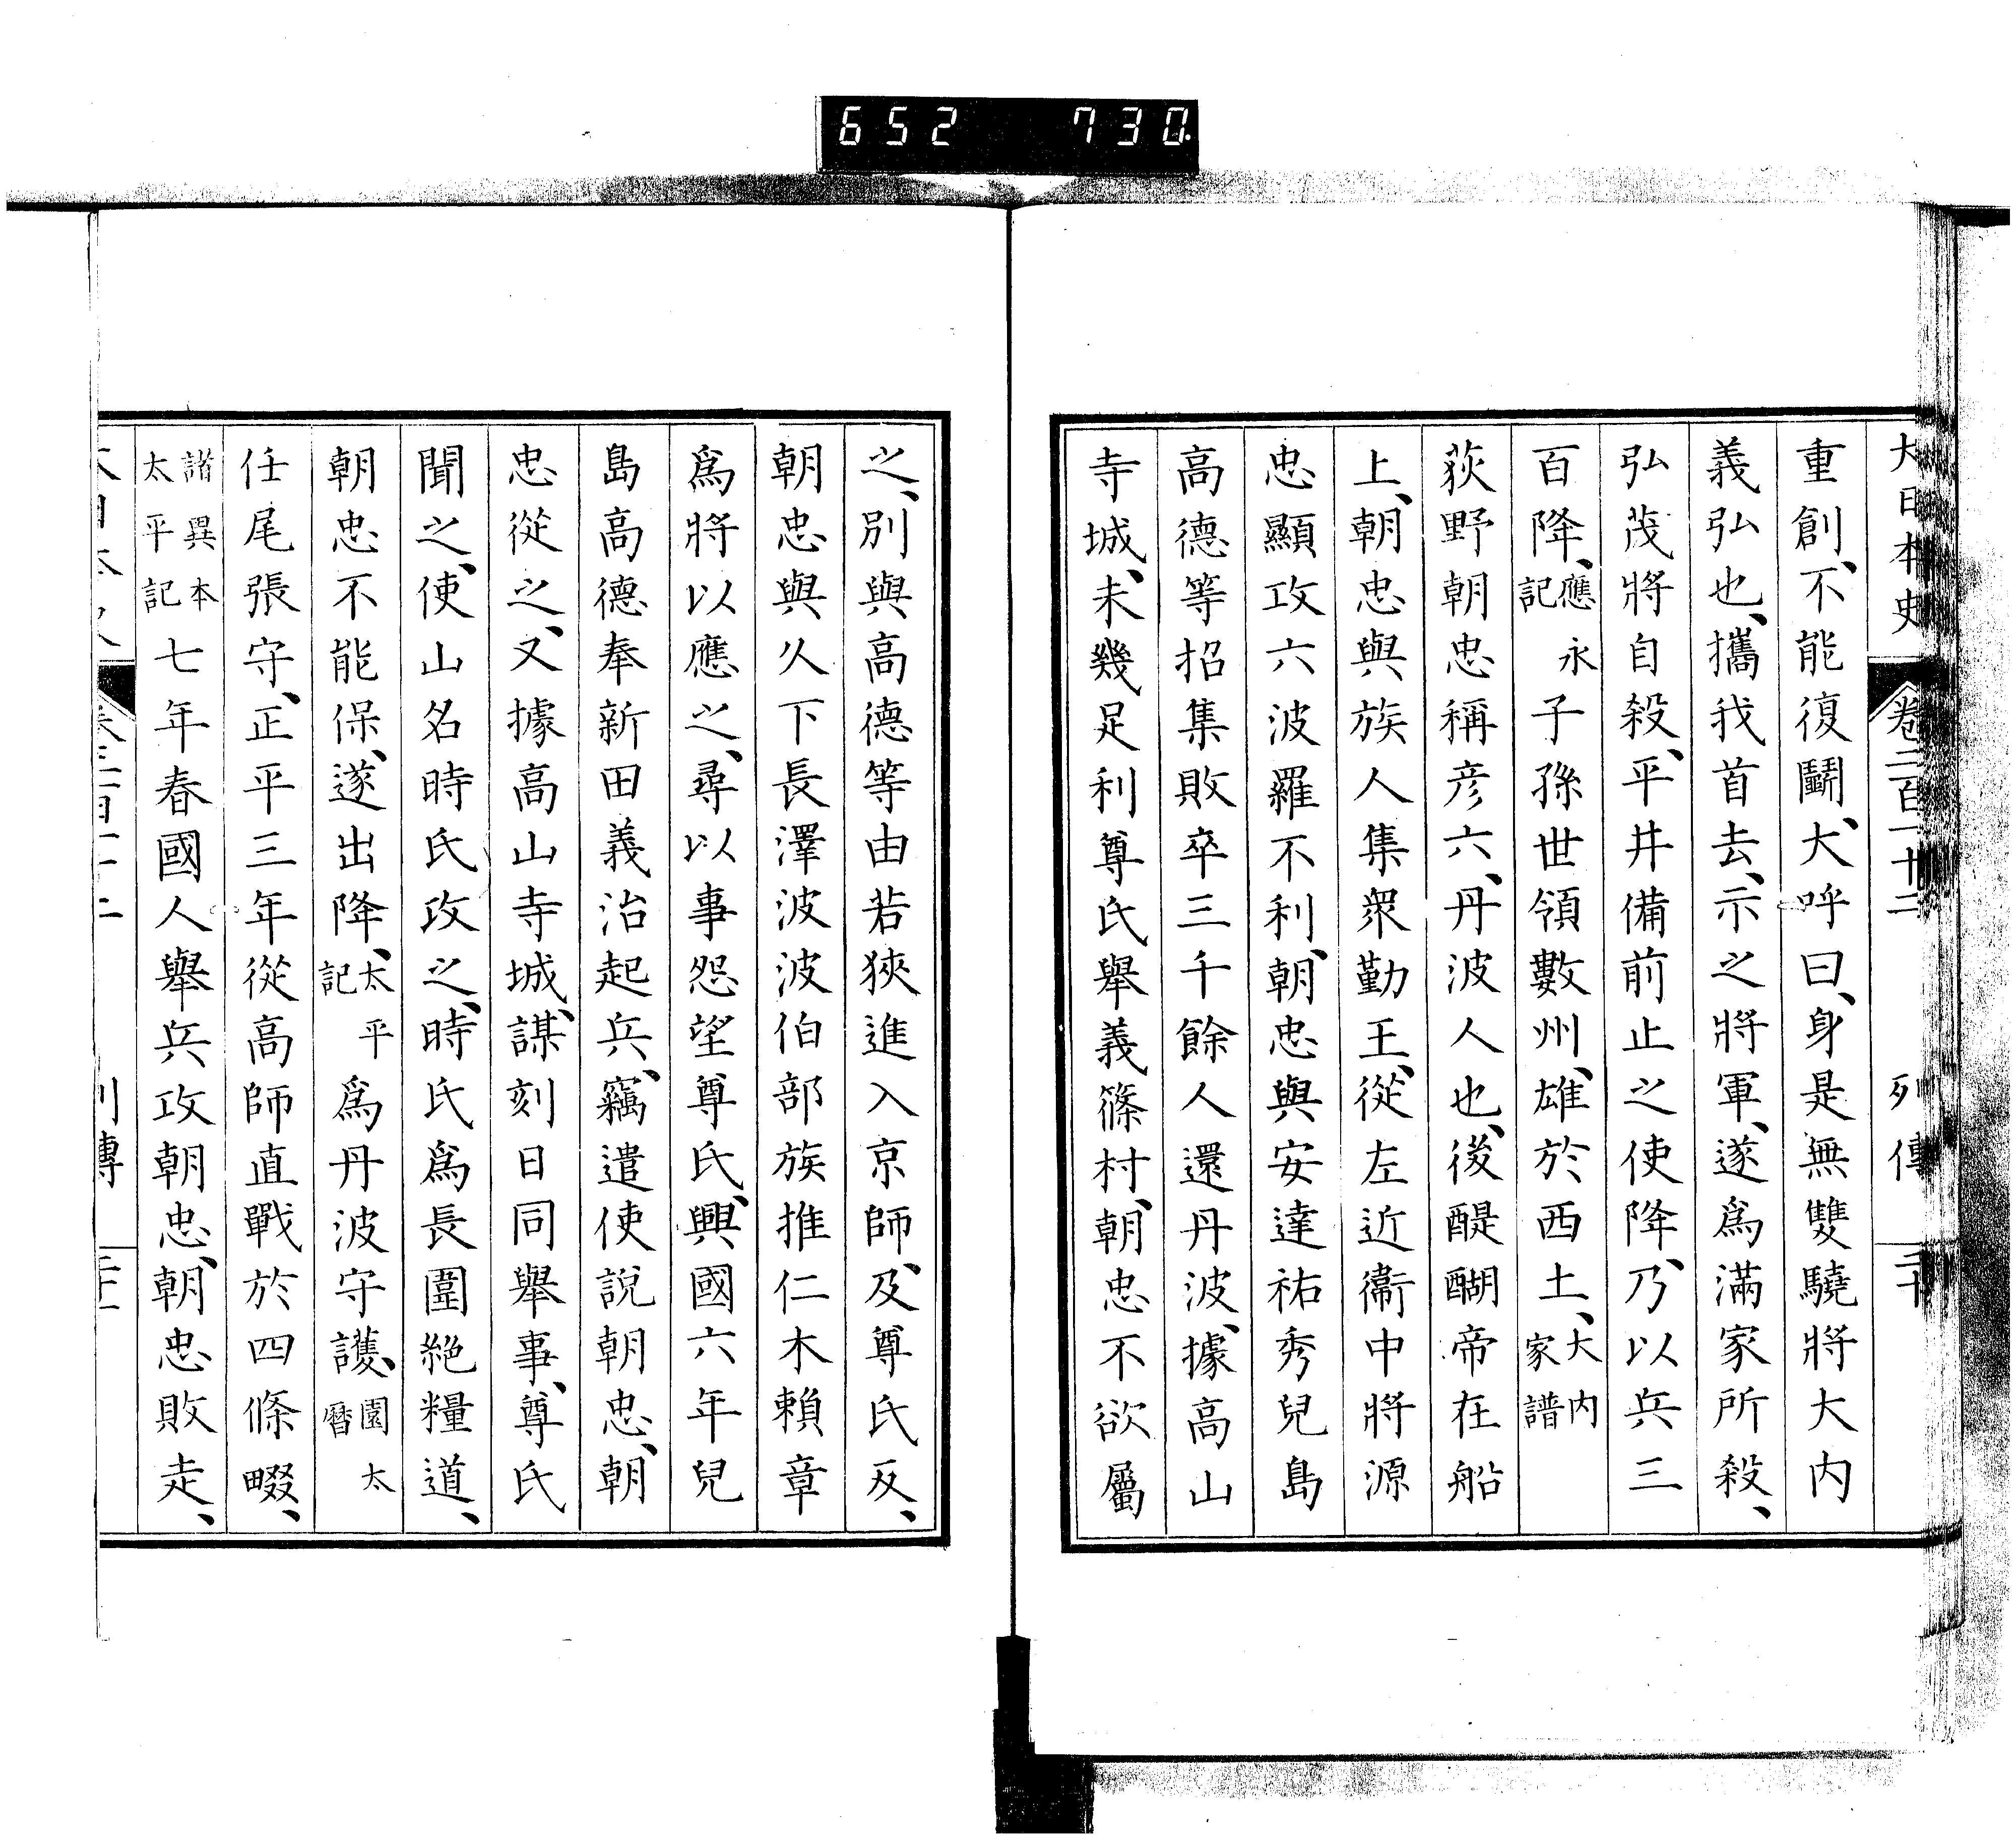 652 730
大日本史 卷二百一十二 列傳 三十
重創、不能復鬪、大呼曰、身是無雙驍將大内
義弘也、攜我首去、示之將軍、遂爲滿家所殺、
弘茂將自殺、平井備前止之使降、乃以兵三
百降、應永記 子孫世領數州、雄於西土、大内家譜
荻野朝忠稱彦六、丹波人也、後醍醐帝在船
上、朝忠與族人集衆勤王、從左近衞中將源
忠顯攻六波羅不利、朝忠與安達祐秀兒島
高德等招集敗卒三千餘人還丹波、據高山
寺城、未幾足利尊氏舉義篠村、朝忠不欲屬
之、別與高德等由若狹進入京師、及尊氏反、
朝忠與久下長澤波波伯部族推仁木賴章
爲將以應之、尋以事怨望尊氏、興國六年兒
島高德奉新田義治起兵、竊遣使說朝忠、朝
忠從之、又據高山寺城、謀刻日同舉事、尊氏
聞之、使山名時氏攻之、時氏爲長圍絶糧道、
朝忠不能保、遂出降、太平記 爲丹波守護、園太曆
任尾張守、正平三年從高師直戰於四條畷、
諸異本太平記 七年春國人舉兵攻朝忠、朝忠敗走、